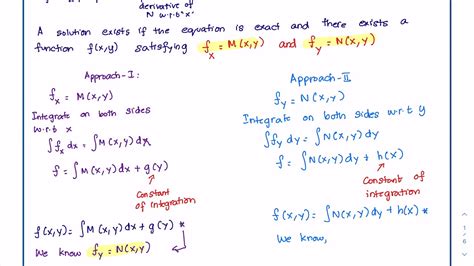 derivative of
N w.r.t 'x'
A solution exists if the equation is exact and there exists a
function f(x,y) satisfying f_x = M(x,y) and f_y = N(x,y)
Approach-I:
f_x = M(x,y)
Integrate on both sides
w.r.t x
∫f_x dx = ∫M(x,y) dx
f = ∫M(x,y) dx + g(y)
Constant
of integration
f(x,y) = ∫M(x,y) dx + g(y) *
We know f_y = N(x,y)
Approach-II
f_y = N(x,y)
Integrate on both sides w.r.t y
∫f_y dy = ∫N(x,y) dy
f = ∫N(x,y) dy + h(x)
Constant of
integration
f(x,y) = ∫N(x,y) dy + h(x) *
We know,
1
/
6